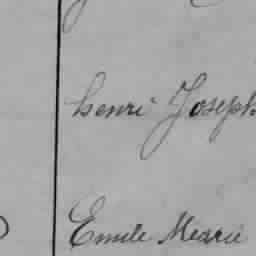 henri Joseph
Emile Marie